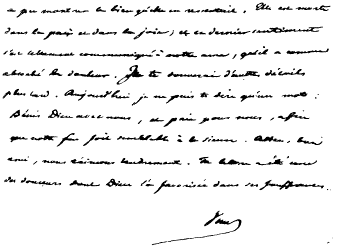 a pu montrer le bien gâté en ressortait. Elle est morte
dans la paix et dans la joie; et ce dernier sentiment
s'est tellement communiqué à notre âme, qu'il a comme
absorbé la douleur. Je te donnerai d'autres détails
plus tard. Aujourd'hui je ne puis te dire qu'un mot :
Bénis Dieu avec nous, et prie pour nous, afin
que notre fin soit semblable à la sienne. Adieu, bon
ami, nous t'aimons tendrement. Ta lettre a été une
des douceurs dont Dieu l'a favorisée dans ses souffrances.